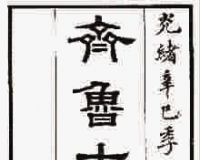 光緒辛巳季
齊魯